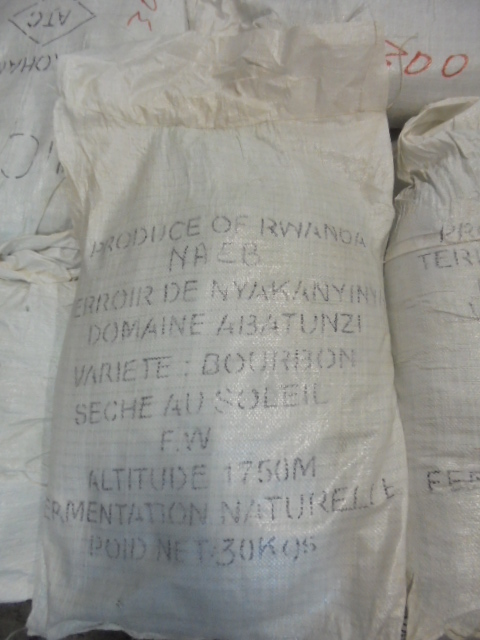 ATC
OO
PRODUCE OF RWANDA
NAEB
ERROIR DE NYAKANYINY
DOMAINE ABATUNZI
VARIETE : BOURBON
SECHE AU SOLEIL
F.W
ALTITUDE 1750M
ERMENTATION NATURELLE
POID NET:30KGS
PR
TER
FER